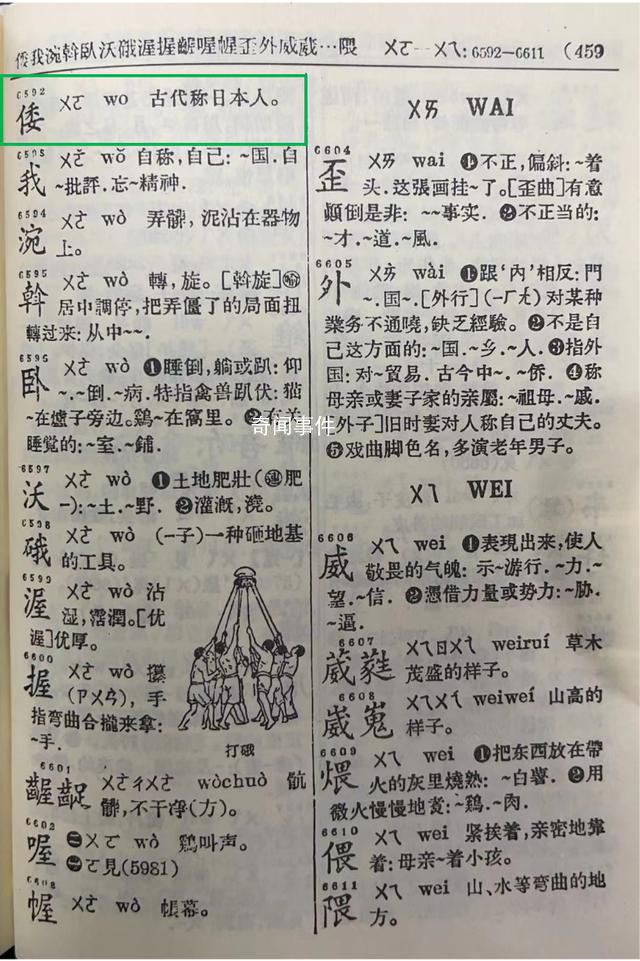 倭我涴斡臥沃硪渥握齷喔幄歪外威葳…隈 ㄨㄛ—ㄨㄟ: 6592—6611 (459
6592
倭 ㄨㄛ wo 古代称日本人。
我 ㄨㄛˇ wǒ 自称,自己: ~国.自
~批評.忘~精神.
6594
涴 ㄨㄛˋ wò 弄髒,泥沾在器物
上。
6595
斡 ㄨㄛˋ wò 轉,旋。[斡旋]
居中調停,把弄僵了的局面扭
轉过来: 从中~~.
臥 ㄨㄛˋ wò ❶睡倒,躺或趴: 仰
~.~倒.~病.特指禽兽趴伏: 猫
~在爐子旁边。鷄~在窩里。❷有关
睡覺的: ~室.~鋪.
奇闻事件
6597
沃 ㄨㄛˋ wò ❶土地肥壯(連肥
—): ~土.~野. ❷灌漑,澆。
6598
硪 ㄨㄛˋ wò (—子)一种砸地基
的工具。
6599
渥 ㄨㄛˋ wò 沾
湿,霑潤。[优
渥]优厚。
6600
握 ㄨㄛˋ wò 攥
(ㄗㄨㄢˋ), 手
指弯曲合攏来拿:
~手.
打硪
6601
齷齪 ㄨㄛˋㄔㄨㄛˋ wòchuò 骯
髒,不干净(方)。
6602
喔 ㊁ㄨㄛ wò 鷄叫声。
㊀ㄛ見(5981)
幄 ㄨㄛˋ wò 帳幕。
ㄨㄞ WAI
6604
歪 ㄨㄞ wai ❶不正,偏斜: ~着
头.这張画挂~了。[歪曲]有意
顚倒是非: ~~事实. ❷不正当的:
~才.~道.~風.
6605
外 ㄨㄞˋ wài ❶跟‘内’相反: 門
~.国~.[外行](—ㄏㄤˊ)对某种
業务不通曉,缺乏經驗。❷不是自
己这方面的: ~国.~乡.~人.❸指外
国: 对~貿易. 古今中~.~侨. ❹称
母亲或妻子家的亲屬: ~祖母.~戚.
[外子]旧时妻对人称自己的丈夫。
❺戏曲脚色名,多演老年男子。
ㄨㄟ WEI
6606
威 ㄨㄟ wei ❶表現出来,使人
敬畏的气魄: 示~游行.~力.~
望.~信. ❷憑借力量或势力: ~胁.
~逼.
6607
葳蕤 ㄨㄟㄖㄨㄟˊ weiruí 草木
茂盛的样子。
6608
崴嵬 ㄨㄟㄨㄟˊ weiweí 山高的
样子。
6609
煨 ㄨㄟ wei ❶把东西放在帶
火的灰里燒熟: ~白薯. ❷用
微火慢慢地煑: ~鷄.~肉.
6610
偎 ㄨㄟ wei 紧挨着,亲密地靠
着: 母亲~着小孩。
6611
隈 ㄨㄟ wei 山、水等弯曲的地
方。